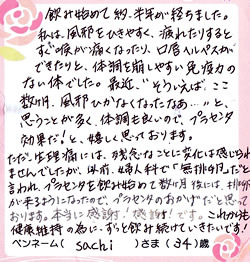 飲み始めて約、半年が経ちました。
私は、風邪をひきやすく、疲れたりすると
すぐ喉が痛くなったり、口唇ヘルペスが
できたりと、体調を崩しやすい免疫力の
ない体でした。最近、"そういえば、ここ
数ヶ月、風邪ひかなくなったなあ…"と、
思うことが多く、体調も良いので、プラセンタ
効果だ!と、嬉しく思っております。
ただ、生理痛には、残念なことに変化は感じられ
ませんでしたが、以前、婦人科で「無排卵だ」と
言われ、プラセンタを飲み始めて数ヶ月後には、排卵
が来るようになったので、プラセンタのおかげだと思って
おります。本当に感謝!感謝!です。これからも
健康維持の為に、ずっと飲み続けていきたいです!
ペンネーム( sachi )さま(34)歳